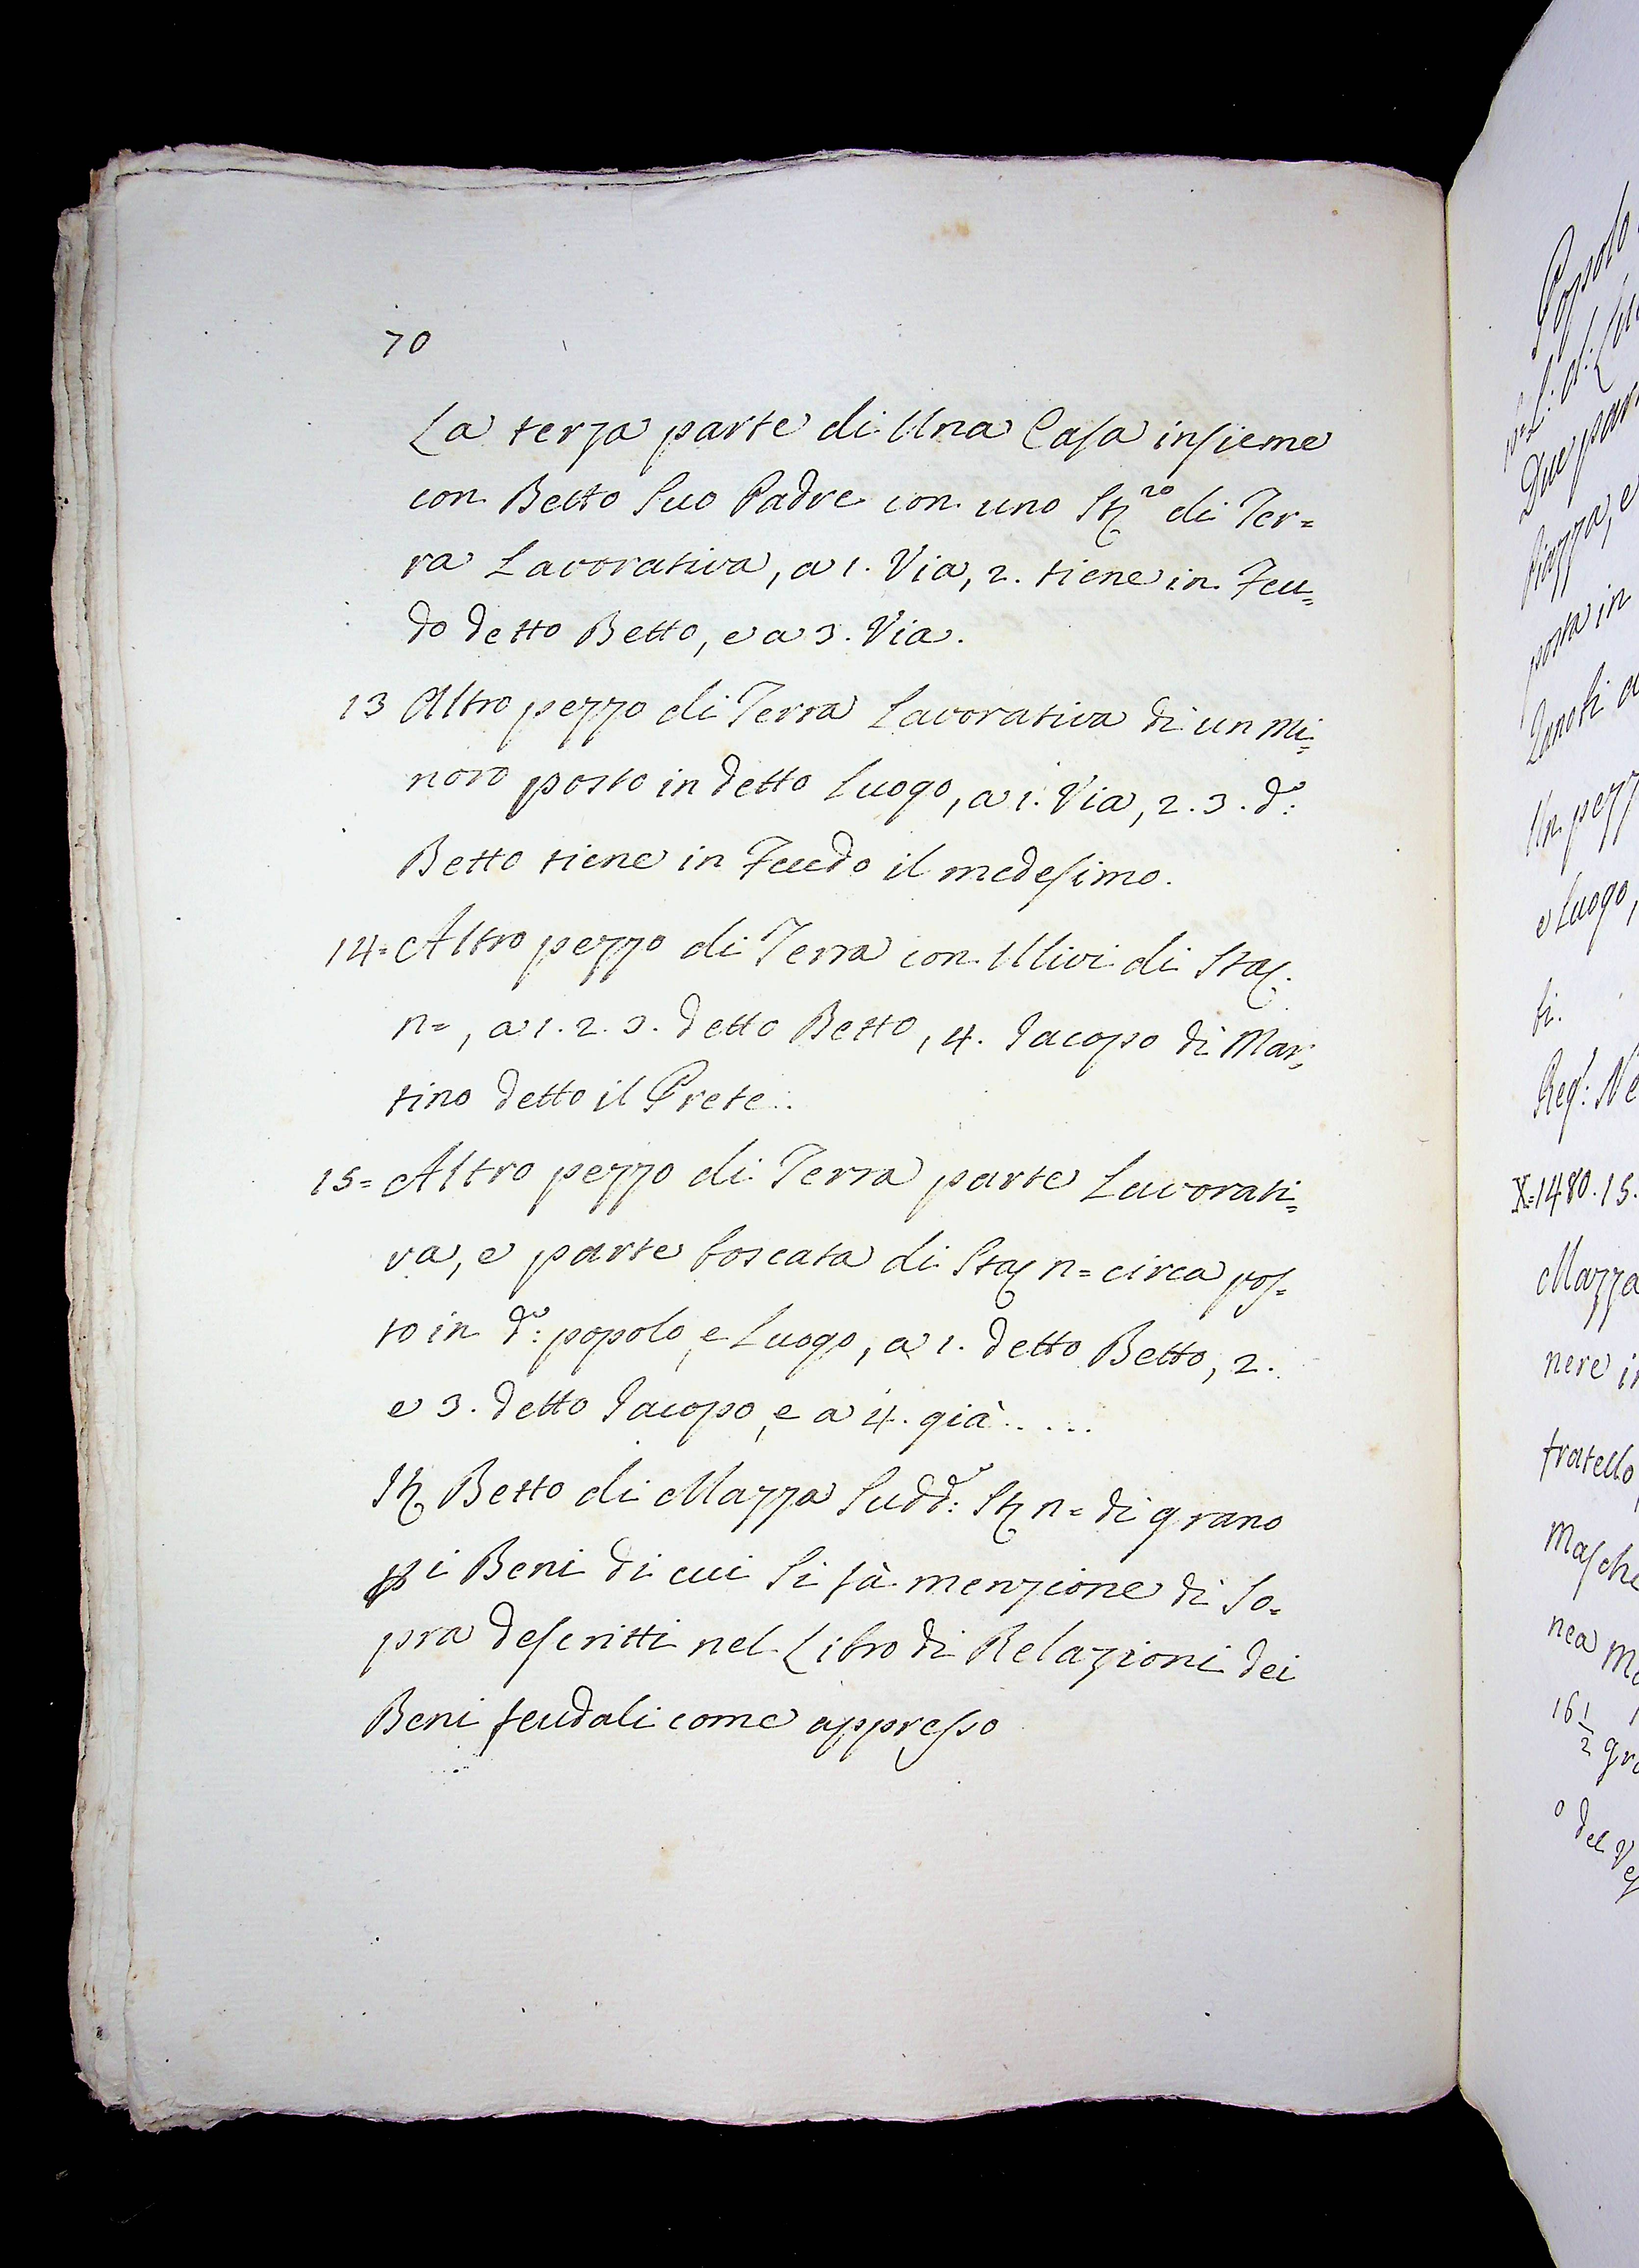 70
La terza parte di Una Casa insieme
con Betto Suo Padre con uno St.ro di Ter=
ra Lavorativa, a 1. Via, 2. tiene in Feu=
do detto Betto, e a 3. Via.
13 Altro pezzo di Terra Lavorativa di un mi=
noro posto in detto Luogo, a 1. Via, 2. 3. d.o:
Betto tiene in Feudo il medesimo.
14= Altro pezzo di Terra con Ulivi di Sta.
n=, a 1. 2. 3. detto Betto, 4. Jacopo di Mar=
tino detto il Prete..
15= Altro pezzo di Terra parte Lavorati=
va, e parte boscata di Sta n= circa pos=
to in d.o: popolo, e Luogo, a 1. detto Betto, 2.
e 3. detto Jacopo, e a 4. già.....
It Betto di Mazza Sudd.o: St n= di grano
p i Beni di cui Si fà menzione di So=
pra descritti nel Libro di Relazioni dei
Beni feudali come appresso
Popolo
Due par
Piazza, e
posta in
Zanobi
Un pezz
e Luogo,
ti.
Reg.: Ne
X=1480. 15.
Mazza
nere in
fratello
masche
nea ma
16 1/2 gra
o del Ve